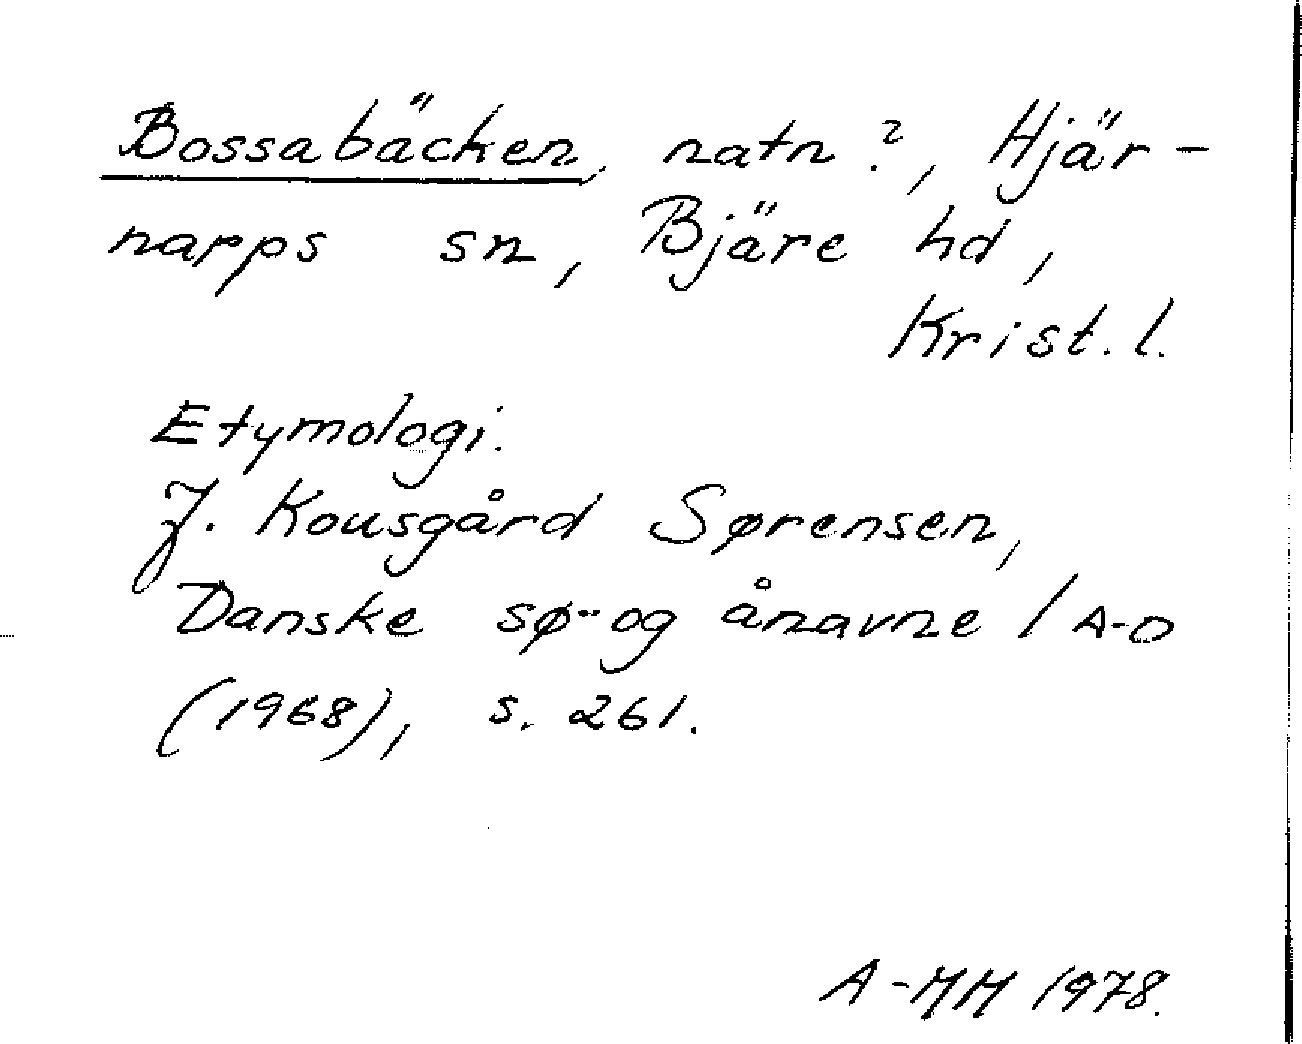 Bossabäcken, natn?, Hjär-
narps sn, Bjäre hd,
Krist. l.
Etymologi.
J. Kousgård Sørensen,
Danske sø- og ånavne 1 A-D
(1968), s. 261.
A-MM 1978.